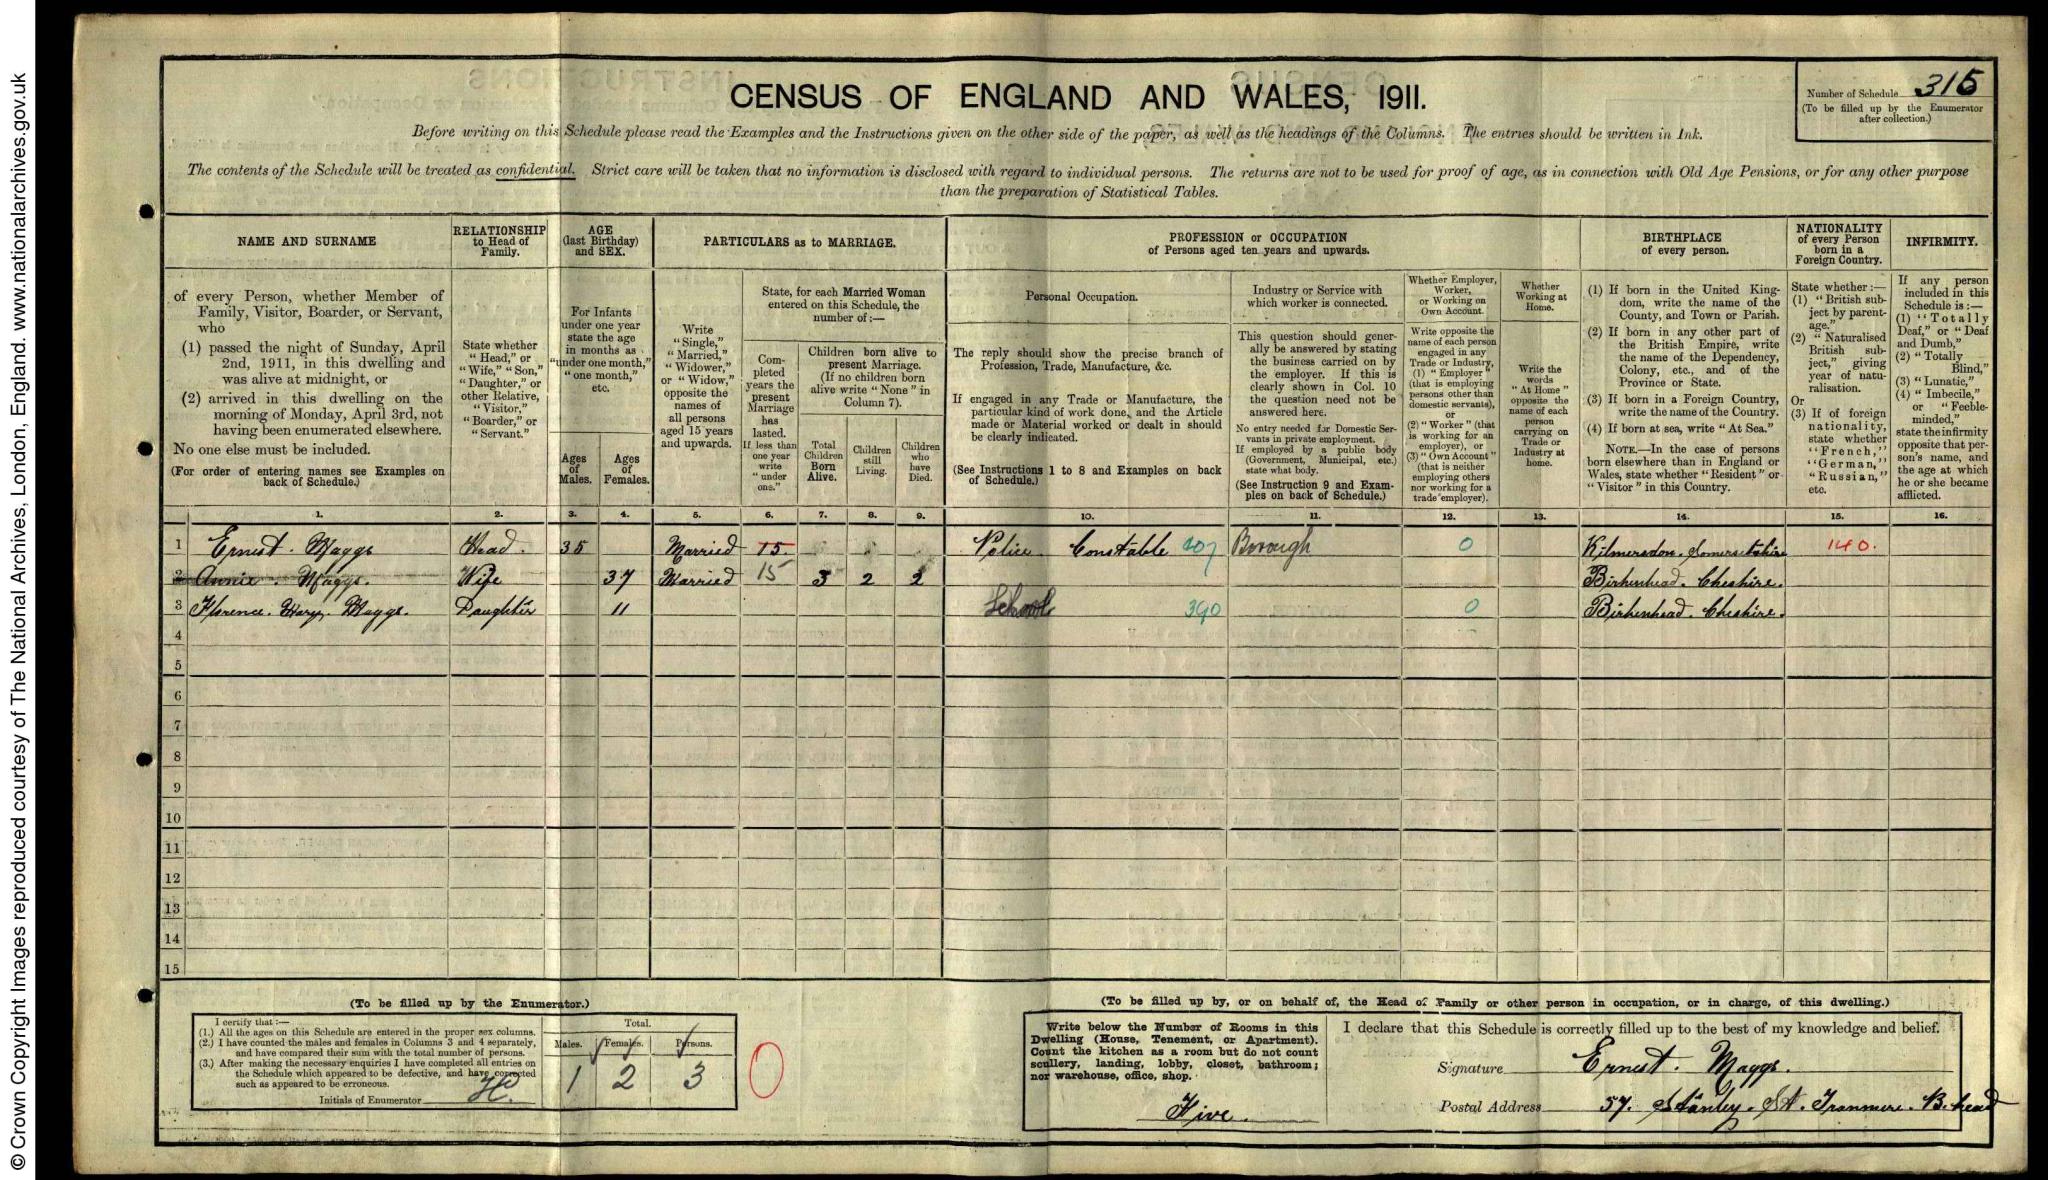 © Crown Copyright Images reproduced courtesy of The National Archives, London, England. www.nationalarchives.gov.uk
CENSUS OF ENGLAND AND WALES, 1911.
Number of Schedule 315
(To be filled up by the Enumerator
after collection.)
Before writing on this Schedule please read the Examples and the Instructions given on the other side of the paper, as well as the headings of the Columns. The entries should be written in Ink.
The contents of the Schedule will be treated as confidential. Strict care will be taken that no information is disclosed with regard to individual persons. The returns are not to be used for proof of age, as in connection with Old Age Pensions, or for any other purpose
than the preparation of Statistical Tables.
NAME AND SURNAME
of every Person, whether Member of
Family, Visitor, Boarder, or Servant,
who
(1) passed the night of Sunday, April
2nd, 1911, in this dwelling and
was alive at midnight, or
(2) arrived in this dwelling on the
morning of Monday, April 3rd, not
having been enumerated elsewhere.
No one else must be included.
(For order of entering names see Examples on
back of Schedule.)
RELATIONSHIP
to Head of
Family.
State whether
"Head," or
"Wife," "Son,"
"Daughter," or
other Relative,
"Visitor,"
"Boarder," or
"Servant."
AGE
(last Birthday)
and SEX.
For Infants
under one year
state the age
in months as
"under one month,"
"one month,"
etc.
Ages
of
Males.
Ages
of
Females.
PARTICULARS as to MARRIAGE.
Write
"Single,"
"Married,"
"Widower,"
or "Widow,"
opposite the
names of
all persons
aged 15 years
and upwards.
State, for each Married Woman
entered on this Schedule, the
number of:—
Com-
pleted
years the
present
Marriage
has
lasted.
If less than
one year
write
"under
one."
Children born alive to
present Marriage.
(If no children born
alive write "None" in
Column 7).
Total
Children
Born
Alive.
Children
still
Living.
Children
who
have
Died.
PROFESSION or OCCUPATION
of Persons aged ten years and upwards.
Personal Occupation.
The reply should show the precise branch of
Profession, Trade, Manufacture, &c.
If engaged in any Trade or Manufacture, the
particular kind of work done, and the Article
made or Material worked or dealt in should
be clearly indicated.
(See Instructions 1 to 8 and Examples on back
of Schedule.)
Industry or Service with
which worker is connected.
This question should gener-
ally be answered by stating
the business carried on by
the employer. If this is
clearly shown in Col. 10
the question need not be
answered here.
No entry needed for Domestic Ser-
vants in private employment.
If employed by a public body
(Government, Municipal, etc.)
state what body.
(See Instruction 9 and Exam-
ples on back of Schedule.)
Whether Employer,
Worker,
or Working on
Own Account.
Write opposite the
name of each person
engaged in any
Trade or Industry,
(1) "Employer"
(that is employing
persons other than
domestic servants),
or
(2) "Worker" (that
is working for an
employer), or
(3) "Own Account"
(that is neither
employing others
nor working for a
trade employer).
Whether
Working at
Home.
Write the
words
"At Home"
opposite the
name of each
person
carrying on
Trade or
Industry at
home.
BIRTHPLACE
of every person.
(1) If born in the United King-
dom, write the name of the
County, and Town or Parish.
(2) If born in any other part of
the British Empire, write
the name of the Dependency,
Colony, etc., and of the
Province or State.
(3) If born in a Foreign Country,
write the name of the Country.
(4) If born at sea, write "At Sea."
NOTE.—In the case of persons
born elsewhere than in England or
Wales, state whether "Resident" or
"Visitor" in this Country.
NATIONALITY
of every Person
born in a
Foreign Country.
State whether :—
(1) "British sub-
ject by parent-
age."
(2) "Naturalised
British sub-
ject," giving
year of natu-
ralisation.
Or
(3) If of foreign
nationality,
state whether
"French,"
"German,"
"Russian,"
etc.
INFIRMITY.
If any person
included in this
Schedule is :—
(1) "Totally
Deaf," or "Deaf
and Dumb,"
(2) "Totally
Blind,"
(3) "Lunatic,"
(4) "Imbecile,"
or "Feeble-
minded,"
state the infirmity
opposite that per-
son's name, and
the age at which
he or she became
afflicted.
1. 2. 3. 4. 5. 6. 7. 8. 9. 10. 11. 12. 13. 14. 15. 16.
1 Ernest. Maggs Head. 35 Married 15. Police Constable 207 Borough 0 Kilmersdon. Somersetshire 140.
2 Annie. Maggs. Wife 37 Married 15 3 2 2 Birkenhead. Cheshire.
3 Florence. Mary. Maggs. Daughter 11 School 390 0 Birkenhead. Cheshire.
4
5
6
7
8
9
10
11
12
13
14
15
(To be filled up by the Enumerator.)
I certify that :—
(1.) All the ages on this Schedule are entered in the proper sex columns.
(2.) I have counted the males and females in Columns 3 and 4 separately,
and have compared their sum with the total number of persons.
(3.) After making the necessary enquiries I have completed all entries on
the Schedule which appeared to be defective, and have corrected
such as appeared to be erroneous.
Initials of Enumerator
Total.
Males. Females. Persons.
1 2 3
0
(To be filled up by, or on behalf of, the Head of Family or other person in occupation, or in charge, of this dwelling.)
Write below the Number of Rooms in this
Dwelling (House, Tenement, or Apartment).
Count the kitchen as a room but do not count
scullery, landing, lobby, closet, bathroom;
nor warehouse, office, shop.
Five.
I declare that this Schedule is correctly filled up to the best of my knowledge and belief.
Signature Ernest. Maggs.
Postal Address 57. Stanley. St. Tranmere. B.head